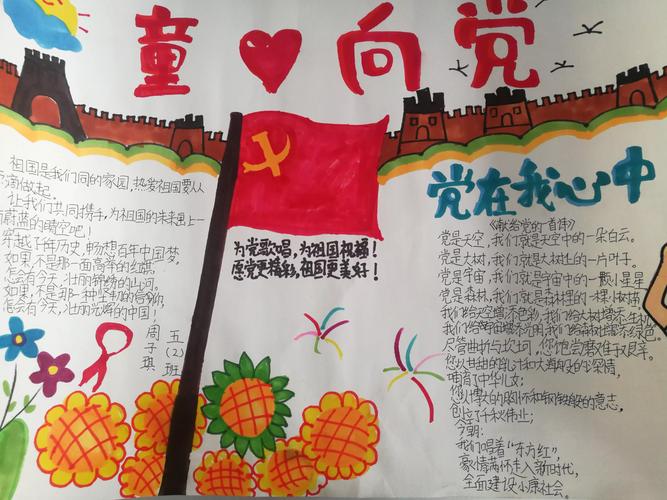 童❤向党
祖国是我们共同的家园,热爱祖国要从
点滴做起。
让我们共同携手,为祖国的未来画上一
蔚蓝的晴空吧!
穿越千年历史,畅想百年中国梦,
如果不是那一面高举的红旗,
怎会有今天,壮丽锦绣的山河。
如果,不是那一种坚韧的信仰,
怎会有今天,壮丽光辉的中国!
五(2)班
周子琪
为党歌唱,为祖国祝福!
愿党更精彩,祖国更美好!
党在我心中
《献给党的一首诗》
党是天空,我们就是天空中的一朵白云。
党是大树,我们就是大树上的一片叶子。
党是宇宙,我们就是宇宙中的一颗小星星
党是森林,我们就是森林里的一棵小树苗
我们给天空增不色彩,我们给大树增添生机
我们给宇宙增添光明,我们给森林增添绿色。
尽管曲折与坎坷,你饱尝磨难于艰辛。
您以甘甜的乳汁和大海般的深情,
哺育了中华儿女;
您以博大的胸怀和钢铁般的意志,
创立了千秋伟业;
今朝:
我们唱着"东方红",
豪情满怀走入新时代,
全面建设小康社会